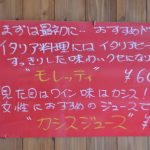 まずは最初に…おすすめド
イタリア料理には イタリアビー
すっきりした味わいクセになり
"モレッティ" ¥60
見た目はワイン 味はカシス!
女性におすすめのジュースで
"カシスジュース" ¥